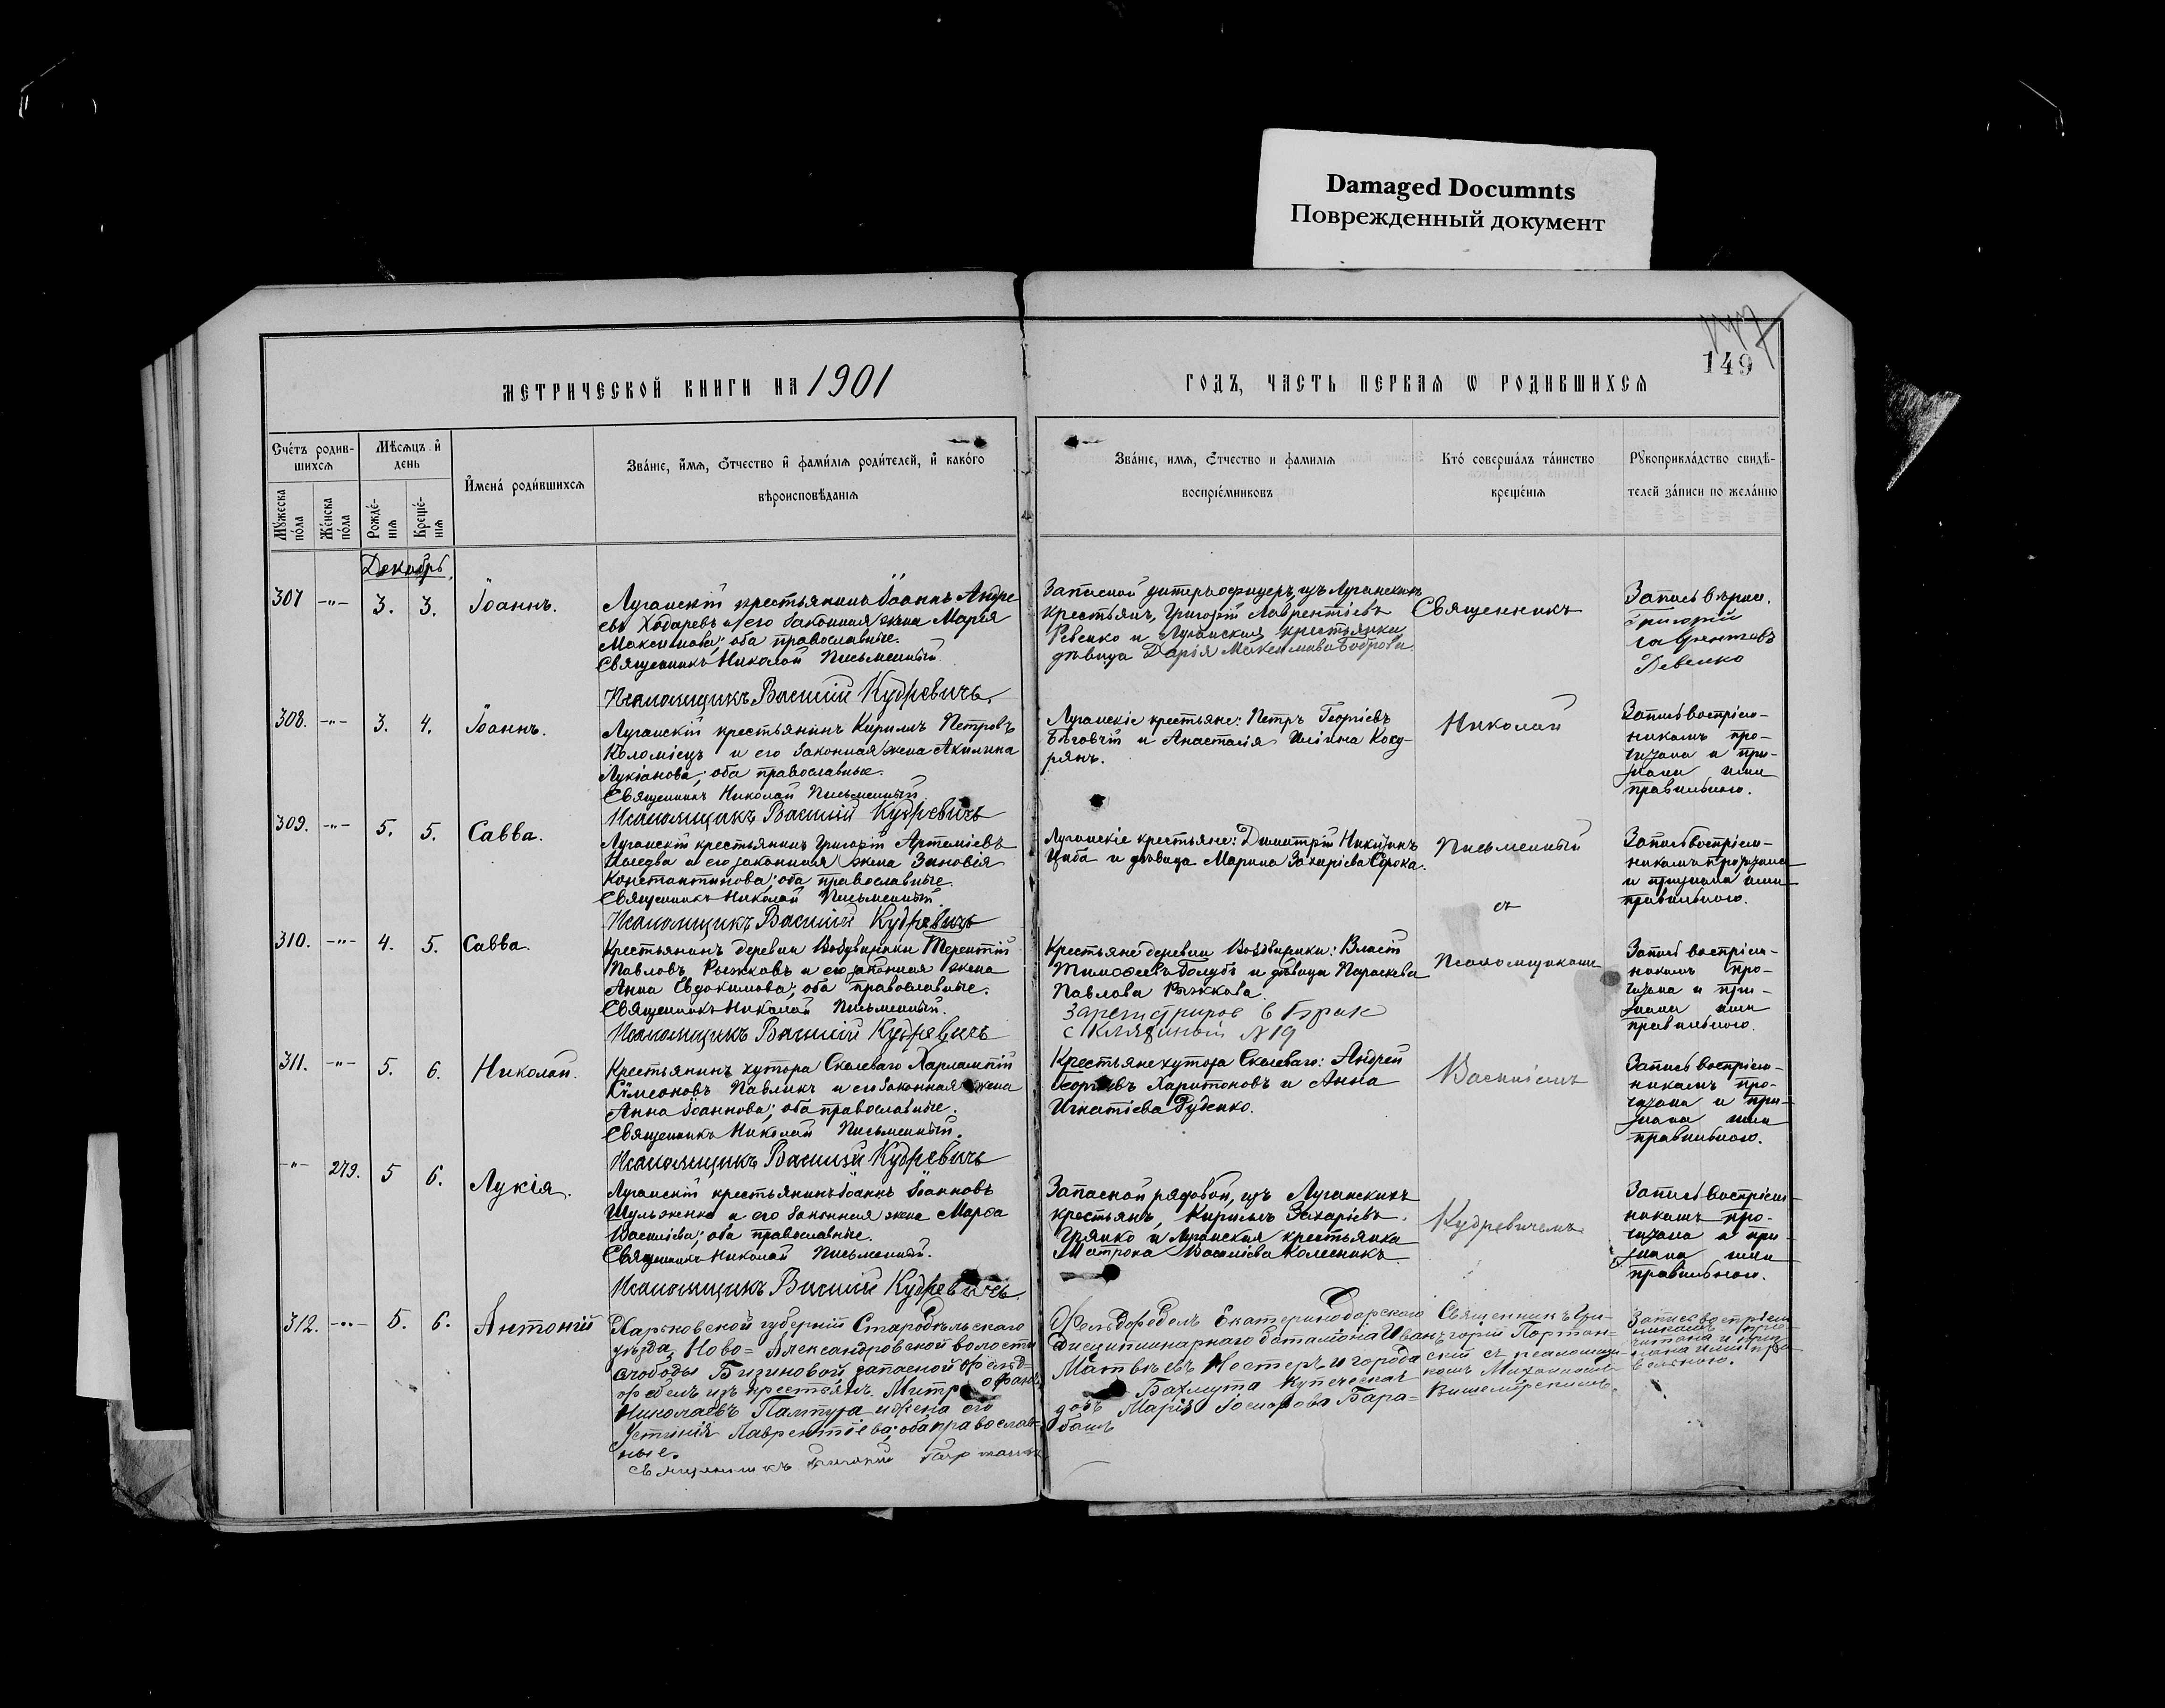 Damaged Documnts
Поврежденный документ
149
МЕТРИЧЕСКОЙ КНИГИ НА 1901
ГОДЪ, ЧАСТЬ ПЕРВАЯ Ѡ РОДИВШИХСЯ
Счетъ родив-
шихся
Мѣсяцъ и
день
Мужеска
пола
Женска
пола
Рожде-
нія
Креще-
нія
Имена родившихся
Званіе, имя, отчество и фамилія родителей, и какого
вѣроисповѣданія
Званіе, имя, отчество и фамилія
воспріемниковъ
Кто совершалъ таинство
крещенія
Рукоприкладство свидѣ-
телей записи по желанію
Декабрь
307 -"- 3. 3. Іоаннъ.
Луганскій крестьянинъ Іоаннъ Андре
евъ Ходаревъ и его законная жена Марія
Максимова; оба православные.
Священникъ Николай Письменный
Псаломщикъ Василій Кудревичъ.
Запасной унтеръ-офицеръ, изъ Луганскихъ
крестьянъ, Григорій Лаврентіевъ
Ревенко и Луганская крестьянка
дѣвица Дарія Максимова Боброва
Священникъ
Запись вѣрна.
Григорій
308. -"- 3. 4. Іоаннъ.
Луганскій крестьянинъ Кириллъ Петровъ
Коломіецъ и его законная жена Акилина
Лукіанова; оба православные.
Священникъ Николай Письменный
Псаломщикъ Василій Кудревичъ
Луганскіе крестьяне: Петръ Георгіевъ
и Анастасія Иліина Коку-
рянъ.
Николай
Запись воспріем-
никамъ про-
читана и при-
знана ими
правильною.
309. -"- 5. 5. Савва.
Луганскій крестьянинъ Григорій Артеміевъ
и его законная жена Зиновія
Константинова; оба православные.
Священникъ Николай Письменный
Псаломщикъ Василій Кудревичъ
Луганскіе крестьяне: Димитрій Никитинъ
Циба и дѣвица Марина Захаріева Сорока.
Письменный
съ
Запись воспріем-
никамъ прочитана
и признана ими
правильною.
310. -"- 4. 5. Савва.
Крестьянинъ деревни Воздвиженки Терентій
Павловъ Рыжковъ и его законная жена
Анна Евдокимова; оба православные.
Священникъ Николай Письменный.
Псаломщикъ Василій Кудревичъ
Крестьяне деревни Воздвиженки: Власій
Тимоѳеевъ Голубъ и дѣвица Параскева
Павлова Рыжкова.
в брак
N 19
Псаломщикомъ
Запись воспріем-
никамъ про-
читана и при-
знана ими
правильною.
311. -"- 5. 6. Николай.
Крестьянинъ хутора Скелеваго Харлампій
Сѵмеоновъ Павликъ и его законная жена
Анна Іоаннова; оба православные.
Священникъ Николай Письменный.
Псаломщикъ Василій Кудревичъ
Крестьяне хутора Скелеваго: Андрей
Георгіевъ Харитоновъ и Анна
Игнатіева Руденко.
Василіемъ
Запись воспріем-
никамъ про-
читана и при-
знана ими
правильною.
-"- 279. 5 6. Лукія.
Луганскій крестьянинъ Іоаннъ Іоанновъ
Шульженко и его законная жена Марѳа
Василіева; оба православные.
Священникъ Николай Письменный.
Псаломщикъ Василій Кудревичъ.
Запасной рядовой, изъ Луганскихъ
крестьянъ, Кириллъ Захаріевъ
Грянко и Луганская крестьянка
Матрона Василіева Колесникъ
Кудревичемъ
Запись воспріем-
никамъ про-
читана и при-
знана ими
правильною.
312. -"- 5. 6. Антоній
Харьковской губерніи Старобѣльскаго
уѣзда, Ново-Александровской волости
слободы Бизиновой запасной фельд-
фебель изъ крестьянъ Митрофанъ
Николаевъ Палтура и жена его
Устинія Лаврентіева; оба православ-
ные.
Священникъ Григорій
Фельдфебель Екатеринодарского
Дисциплинарнаго баталіона Иванъ
Матвѣевъ Нестеръ и города
Бахмута Купеческая
дочь Марія Іосифова Бара-
банъ
Священникъ Гри-
горій Портан-
скій съ псаломщи-
комъ Михаиломъ
Вишемірскимъ.
Запись воспріем-
никамъ про-
читана и приз-
нана ими пра-
вильною.